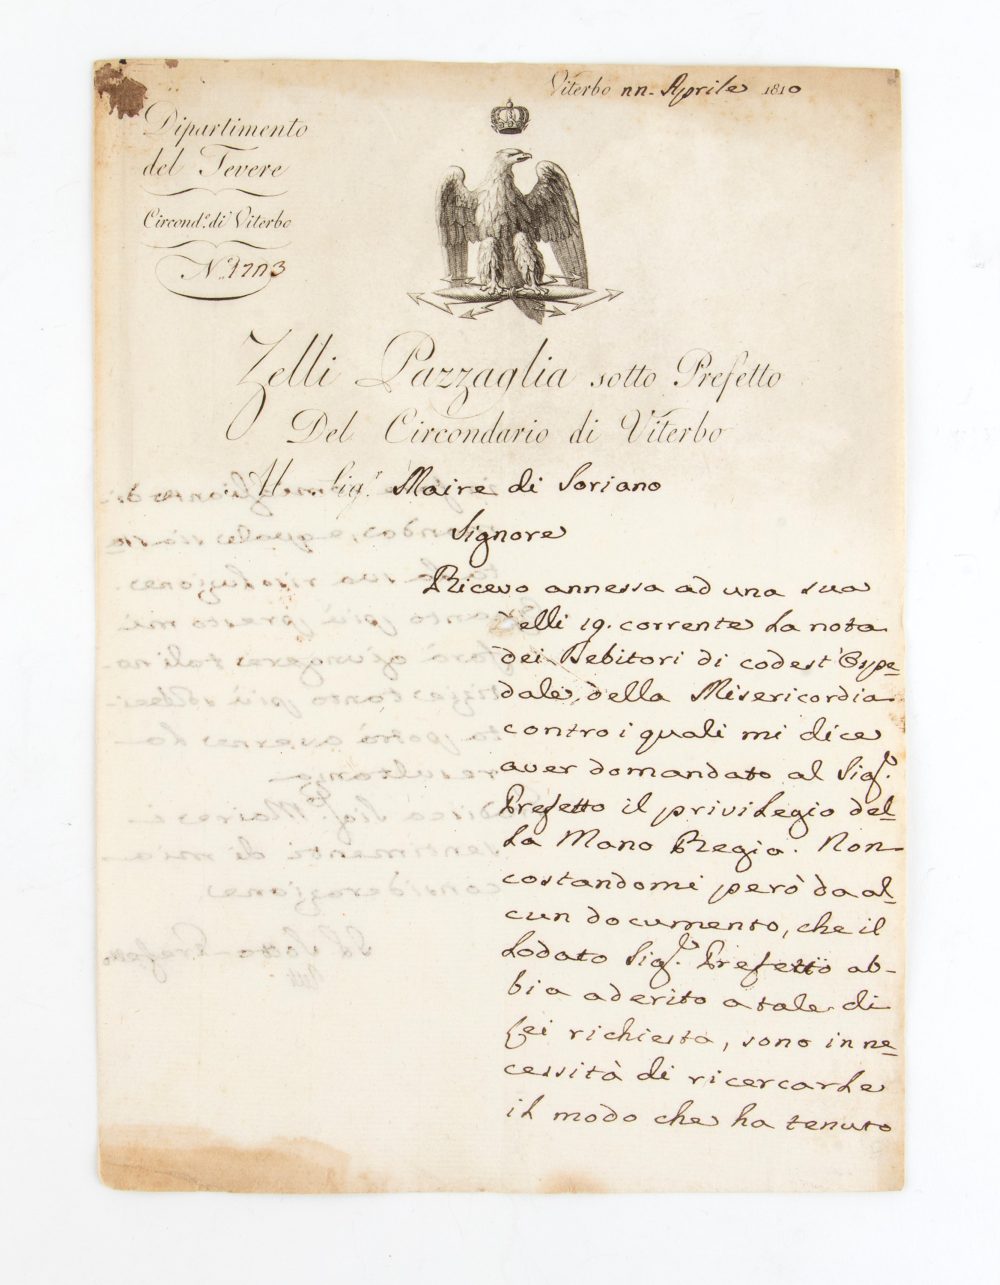 Viterbo nn. Aprile 1810
Dipartimento
del Tevere
Circond.º di Viterbo
N.º 1703
Zelli Pazzaglia sotto Prefetto
Del Circondario di Viterbo
Al Sig.r Maire di Soriano
Signore
Ricevo annessa ad una sua
delli 19. corrente la nota
dei Debitori di codest'Ospe=
dale della Misericordia
contro i quali mi dice
aver domandato al Sig.r
Prefetto il privilegio del=
la Mano Regia. Non
costandomi però da al=
cun documento, che il
lodato Sig.r Prefetto ab=
bia aderito a tale di
Lei richiesta, sono in ne=
cessità di ricercarle
il modo che ha tenuto